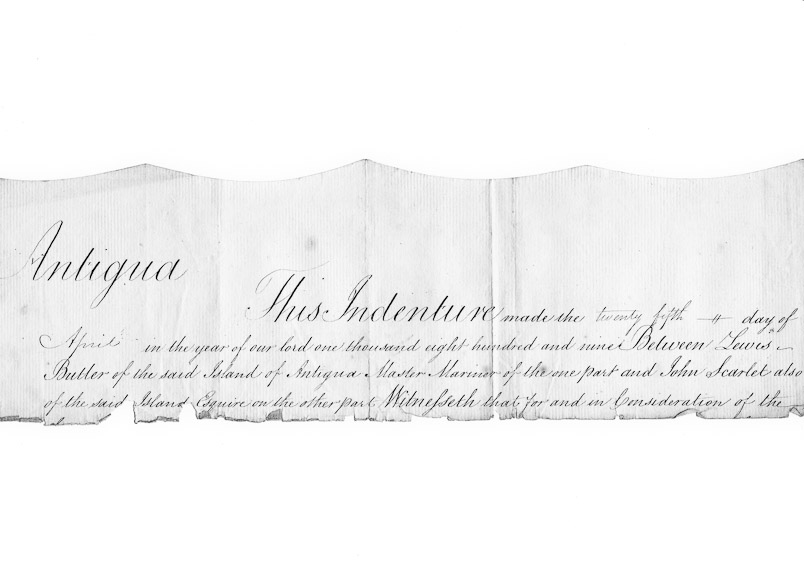 Antigua
This Indenture made the twenty fifth day of
April in the year of our lord one thousand eight hundred and nine Between Lewis
Butler of the said Island of Antigua Master Mariner of the one part and John Scarlet also
of the said Island Esquire on the other part Witnesseth that for and in Consideration of the